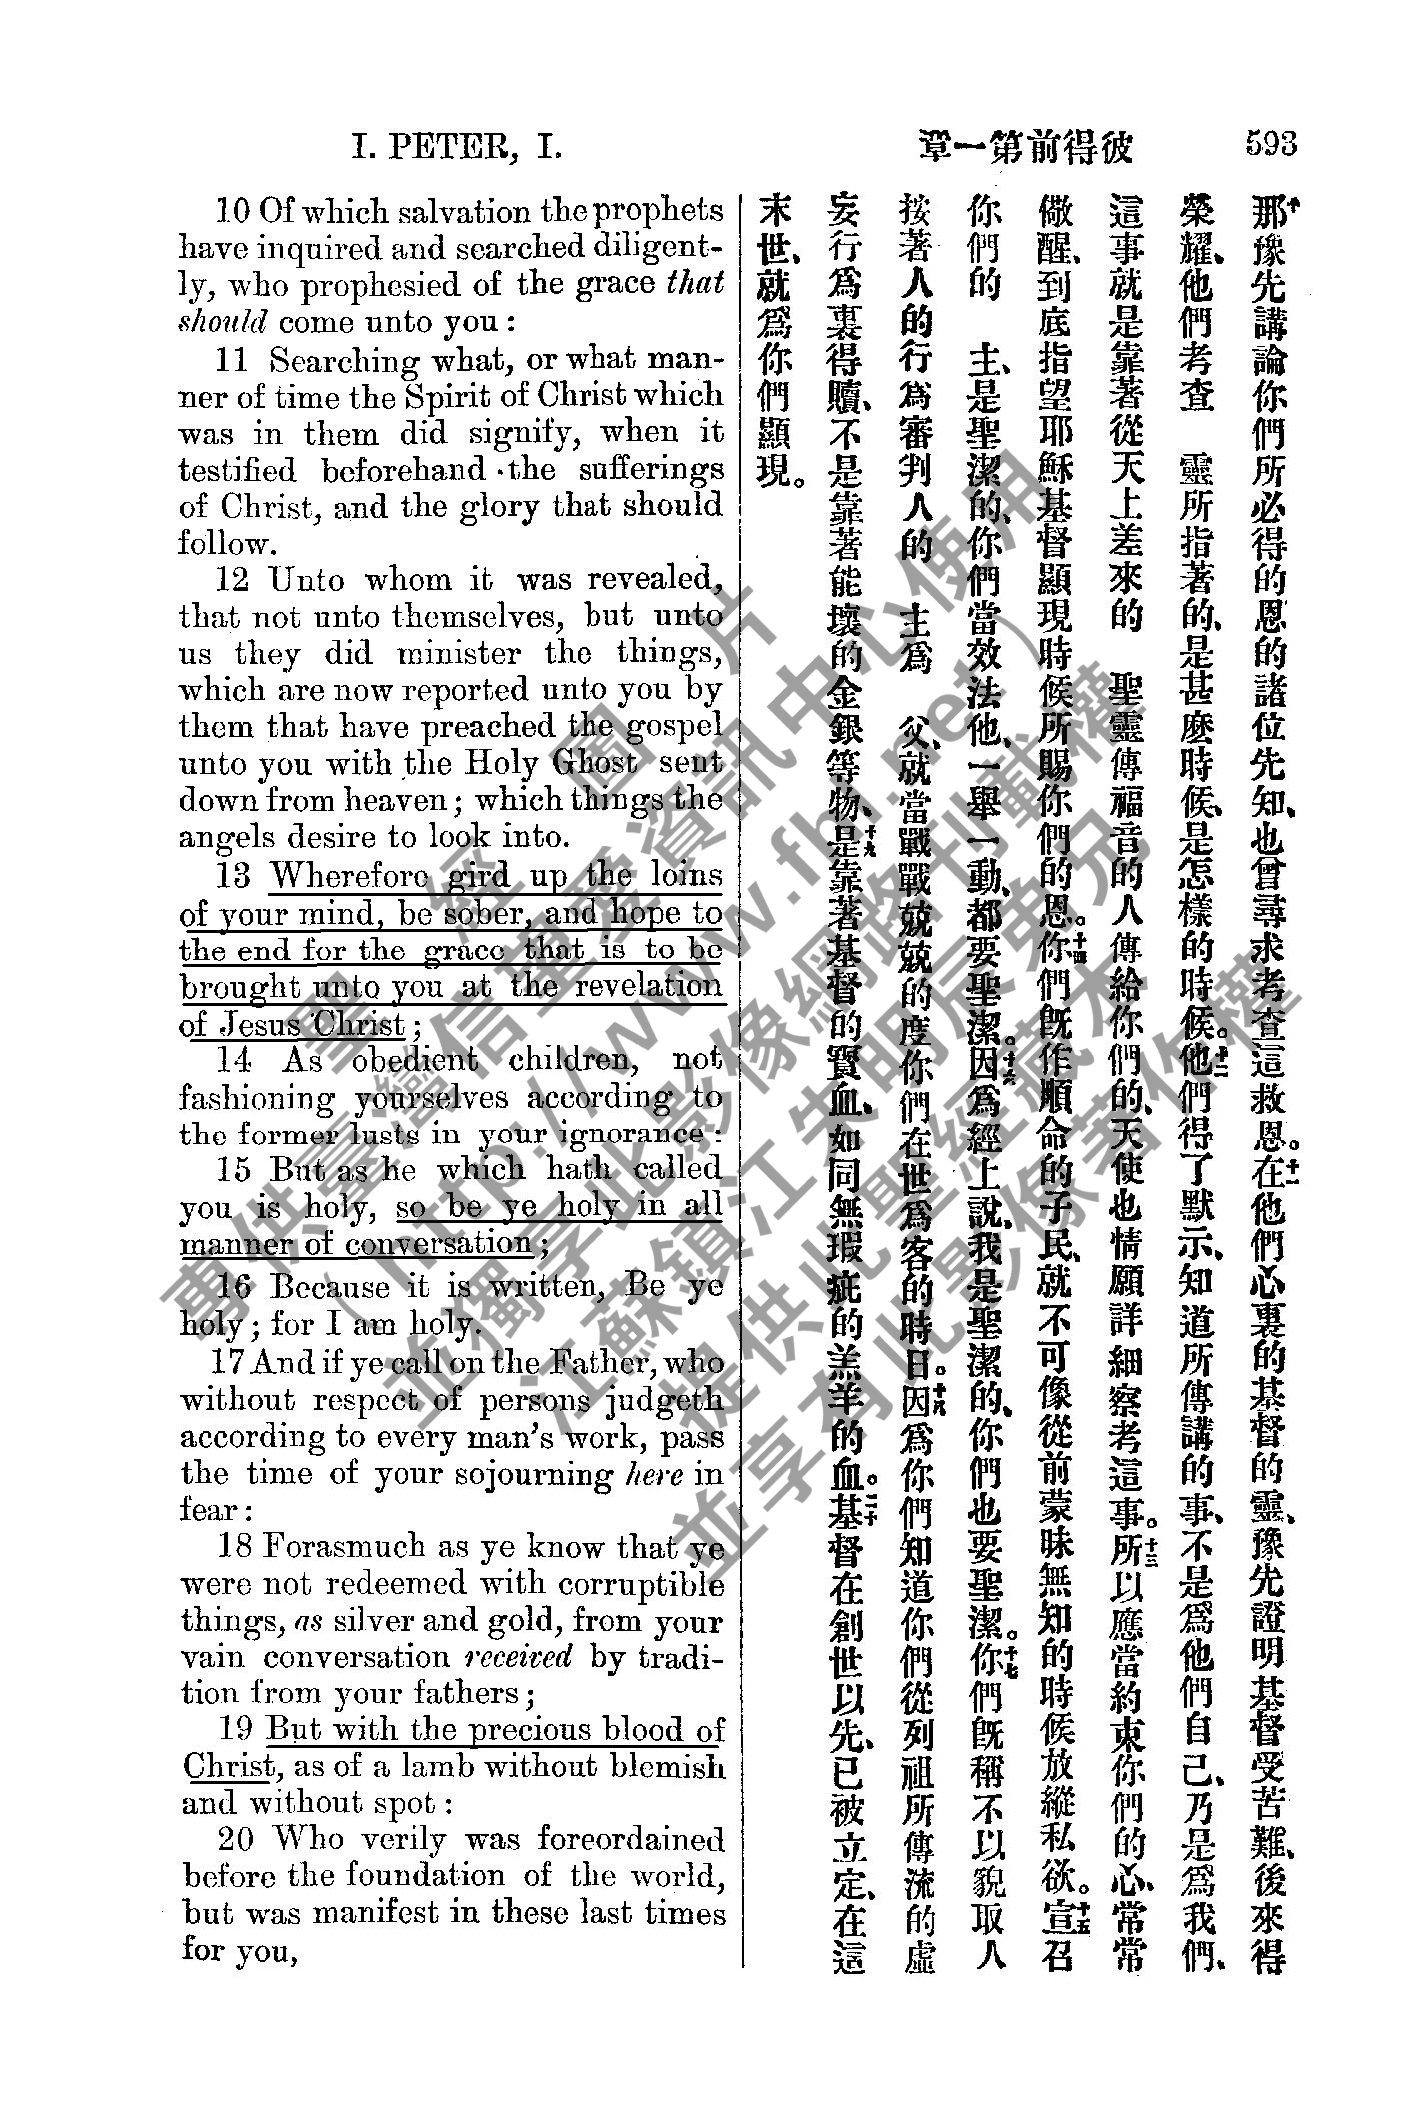 I. PETER, I.
章一第前得彼
593
10 Of which salvation the prophets
have inquired and searched diligent-
ly, who prophesied of the grace that
should come unto you :
11 Searching what, or what man-
ner of time the Spirit of Christ which
was in them did signify, when it
testified beforehand the sufferings
of Christ, and the glory that should
follow.
12 Unto whom it was revealed,
that not unto themselves, but unto
us they did minister the things,
which are now reported unto you by
them that have preached the gospel
unto you with the Holy Ghost sent
down from heaven; which things the
angels desire to look into.
13 Wherefore gird up the loins
of your mind, be sober, and hope to
the end for the grace that is to be
brought unto you at the revelation
of Jesus Christ;
14 As obedient children, not
fashioning yourselves according to
the former lusts in your ignorance :
15 But as he which hath called
you is holy, so be ye holy in all
manner of conversation;
16 Because it is written, Be ye
holy; for I am holy.
17 And if ye call on the Father, who
without respect of persons judgeth
according to every man's work, pass
the time of your sojourning here in
fear:
18 Forasmuch as ye know that ye
were not redeemed with corruptible
things, as silver and gold, from your
vain conversation received by tradi-
tion from your fathers;
19 But with the precious blood of
Christ, as of a lamb without blemish
and without spot :
20 Who verily was foreordained
before the foundation of the world,
but was manifest in these last times
for you,
十那豫先講論你們所必得的恩的諸位先知、也曾尋求考查這救恩。十一在他們心裏的基督的靈、豫先證明基督受苦難、後來得
榮耀、他們考查 靈所指著的、是甚麼時候、是怎樣的時候。十二他們得了默示、知道所傳講的事、不是爲他們自己、乃是爲我們、
這事就是靠著從天上差來的 聖靈傳福音的人傳給你們的、天使也情願詳細察考這事。十三所以應當約束你們的心、常常
儆醒、到底指望耶穌基督顯現時候所賜你們的恩。十四你們既作順命的子民、就不可像從前蒙昧無知的時候放縱私欲。十五宣召
你們的 主、是聖潔的、你們當效法他、一舉一動、都要聖潔。十六因爲經上說、我是聖潔的、你們也要聖潔。十七你們既稱不以貌取人
按著人的行爲審判人的 主爲 父、就當戰戰兢兢的度你們在世爲客的時日。十八因爲你們知道你們從列祖所傳流的虛
妄行爲裏得贖、不是靠著能壞的金銀等物、十九是靠著基督的寶血、如同無瑕疵的羔羊的血。二十基督在創世以先、已被立定、在這
末世、就爲你們顯現。
聖經圖片
專供臺灣信望愛資訊中心使用
(http://www.fhl.net)
並獨享此影像網路刊載權
江蘇鎮江朱明辰弟兄
提供此聖經藏本
並享有此影像著作權